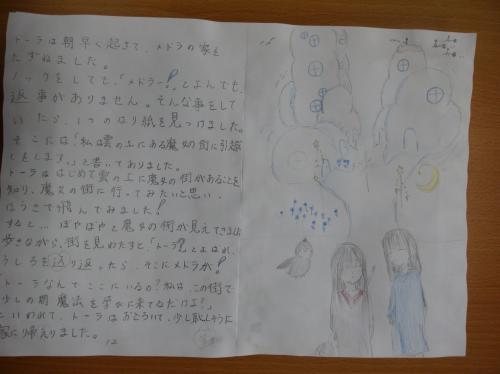 トーラは朝早く起きて、メドラの家を
たずねました。
ノックをしても、「メドラー!」とよんでも、
返事がありません。そんな事をして
いたら、1つのはり紙を見つけました。
そこには「私は雲の上にある魔女の街に引越
しをします。」と書いてありました。
トーラははじめて雲の上に魔女の街があることを
知り、魔女の街に行ってみたいと思い、
ほうきで飛んでみました!
すると… ぼやぼやと魔女の街が見えてきました
歩きながら、街を見わたすと、「トーラ?」とよばれ、
うしろを返り返ったら、そこにメドラが!
「トーラなんでここにいるの?私は、この街で
少しの間魔法を学びに来てるだけよ?」
といわれて、トーラはおどろいて、少し恥しそうに
家に帰えりました。
12